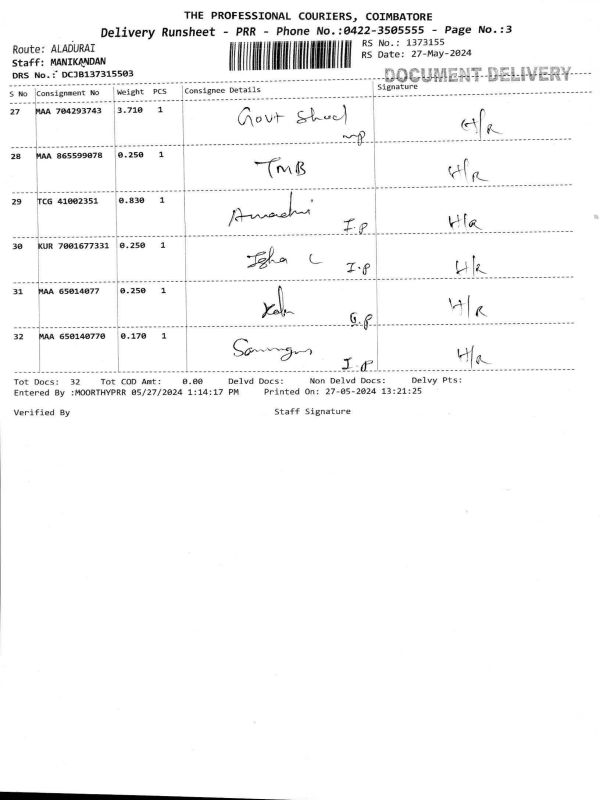 THE PROFESSIONAL COURIERS, COIMBATORE
Delivery Runsheet - PRR - Phone No.:0422-3505555 - Page No.:3
Route: ALADURAI
RS No.: 1373155
Staff: MANIKANDAN
RS Date: 27-May-2024
DRS No.: DCJB137315503
DOCUMENT DELIVERY
S No Consignment No Weight PCS Consignee Details Signature
27 MAA 704293743 3.710 1 Govt H/R
28 MAA 865599078 0.250 1 TMB H/R
29 TCG 41002351 0.830 1 I.P H/R
30 KUR 7001677331 0.250 1 I.P H/R
31 MAA 65014077 0.250 1 G.P H/R
32 MAA 650140770 0.170 1 I.P H/R
Tot Docs: 32 Tot COD Amt: 0.00 Delvd Docs: Non Delvd Docs: Delvy Pts:
Entered By :MOORTHYPRR 05/27/2024 1:14:17 PM Printed On: 27-05-2024 13:21:25
Verified By Staff Signature